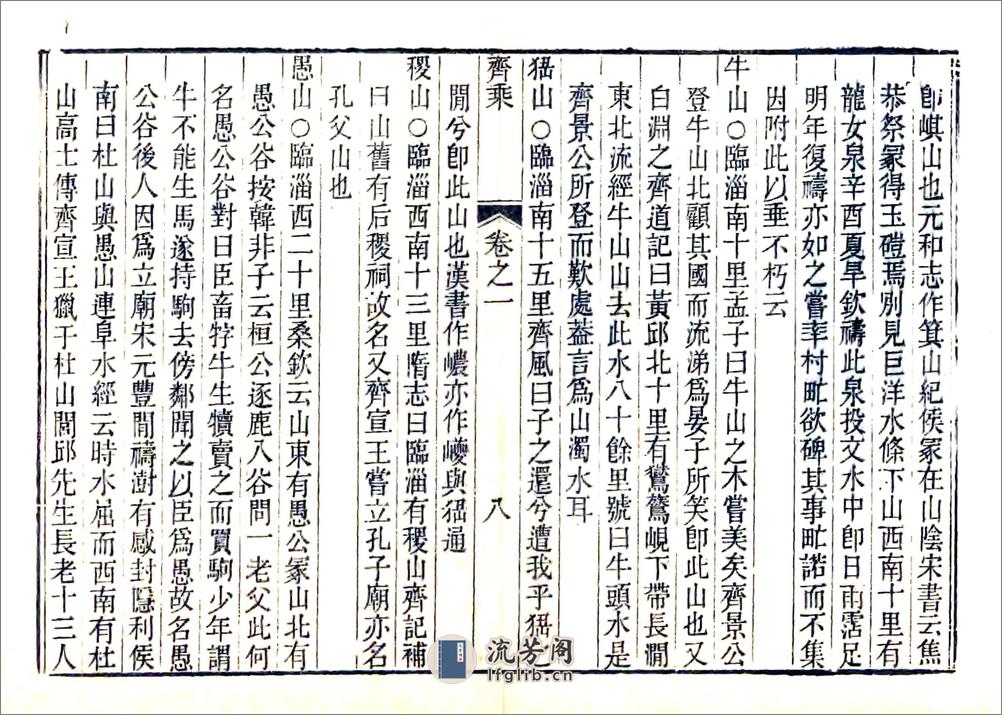 卽㟓山也元和志作箕山紀侯冢在山陰宋書云焦
恭祭冢得玉磑焉別見巨洋水條下山西南十里有
龍女泉辛酉夏旱欽禱此泉投文水中卽日雨霑足
明年復禱亦如之嘗李村甿欲碑其事甿諾而不集
因附此以垂不朽云
牛山○臨淄南十里孟子曰牛山之木嘗美矣齊景公
登牛山北顧其國而流涕爲晏子所笑卽此山也又
白淵之齊道記曰黃邱北十里有鴛鴦峴下帶長澗
東北流經牛山山去此水八十餘里號曰牛頭水是
齊景公所登而歎處葢言爲山濁水耳
猺山○臨淄南十五里齊風曰子之還兮遭我乎猺之
齊乘
卷之一
八
閒兮卽此山也漢書作巎亦作巙與猺通
稷山○臨淄西南十三里隋志曰臨淄有稷山齊記補
曰山舊有后稷祠故名又齊宣王嘗立孔子廟亦名
孔父山也
愚山○臨淄西二十里桑欽云山東有愚公冢山北有
愚公谷按韓非子云桓公逐鹿入谷問一老父此何
名愚公谷對曰臣畜牸牛生犢賣之而買駒少年謂
牛不能生馬遂持駒去傍鄰聞之以臣爲愚故名愚
公谷後人因爲立廟宋元豐閒禱澍有感封隱利侯
南曰杜山與愚山連阜水經云時水屈而西南有杜
山高士傳齊宣王獵于杜山閭邱先生長老十三人
流芳阁
lfglib.cn